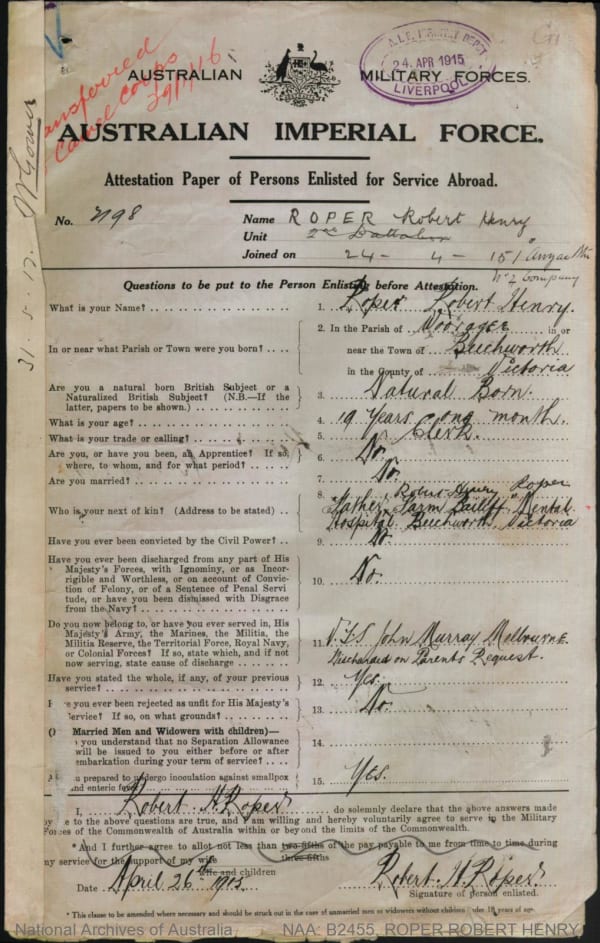 Transferred
Camel Corps
A.I.F.
24 APR 1915
LIVERPOOL
AUSTRALIAN MILITARY FORCES.
AUSTRALIAN IMPERIAL FORCE.
Attestation Paper of Persons Enlisted for Service Abroad.
No. 2198
Name ROPER Robert Henry
Unit 2nd Battalion
Joined on 24 - 4 - 15
Company
Questions to be put to the Person Enlisting before Attestation.
What is your Name? 1. Roper Robert Henry.
In or near what Parish or Town were you born? 2. In the Parish of Wooragee in or
near the Town of Beechworth
in the County of Victoria
Are you a natural born British Subject or a
Naturalized British Subject? (N.B.—If the
latter, papers to be shown.) 3. Natural Born.
What is your age? 4. 19 years one month.
What is your trade or calling? 5. Clerk.
Are you, or have you been, an Apprentice? If so,
where, to whom, and for what period? 6. No.
Are you married? 7. No.
Who is your next of kin? (Address to be stated) 8. Father Robert Henry Roper
Farm Bailiff, Mental
Hospital Beechworth, Victoria
Have you ever been convicted by the Civil Power? 9. No.
Have you ever been discharged from any part of His
Majesty's Forces, with Ignominy, or as Incor-
rigible and Worthless, or on account of Convic-
tion of Felony, or of a Sentence of Penal Servi
tude, or have you been dismissed with Disgrace
from the Navy? 10. No.
Do you now belong to, or have you ever served in, His
Majesty's Army, the Marines, the Militia, the
Militia Reserve, the Territorial Force, Royal Navy,
or Colonial Forces? If so, state which, and if not
now serving, state cause of discharge 11. John Murray Melbourne.
Discharged on Parents Request.
Have you stated the whole, if any, of your previous
service? 12. Yes.
you ever been rejected as unfit for His Majesty's
service? If so, on what grounds? 13. No.
Married Men and Widowers with children)—
you understand that no Separation Allowance
will be issued to you either before or after
embarkation during your term of service? 14.
prepared to undergo inoculation against smallpox
and enteric fever? 15. Yes.
I, Robert H. Roper do solemnly declare that the above answers made
by me to the above questions are true, and I am willing and hereby voluntarily agree to serve in the Military
Forces of the Commonwealth of Australia within or beyond the limits of the Commonwealth.
*And I further agree to allot not less than two-fifths of the pay payable to me from time to time during
three-fifths
my service for the support of my wife
wife and children
Date April 26th 1915 Robert H. Roper
Signature of person enlisted.
* This clause to be amended where necessary and should be struck out in the case of unmarried men or widowers without children under 18 years of age.
31 - 5 - 17.
National Archives of Australia NAA: B2455, ROPER ROBERT HENRY